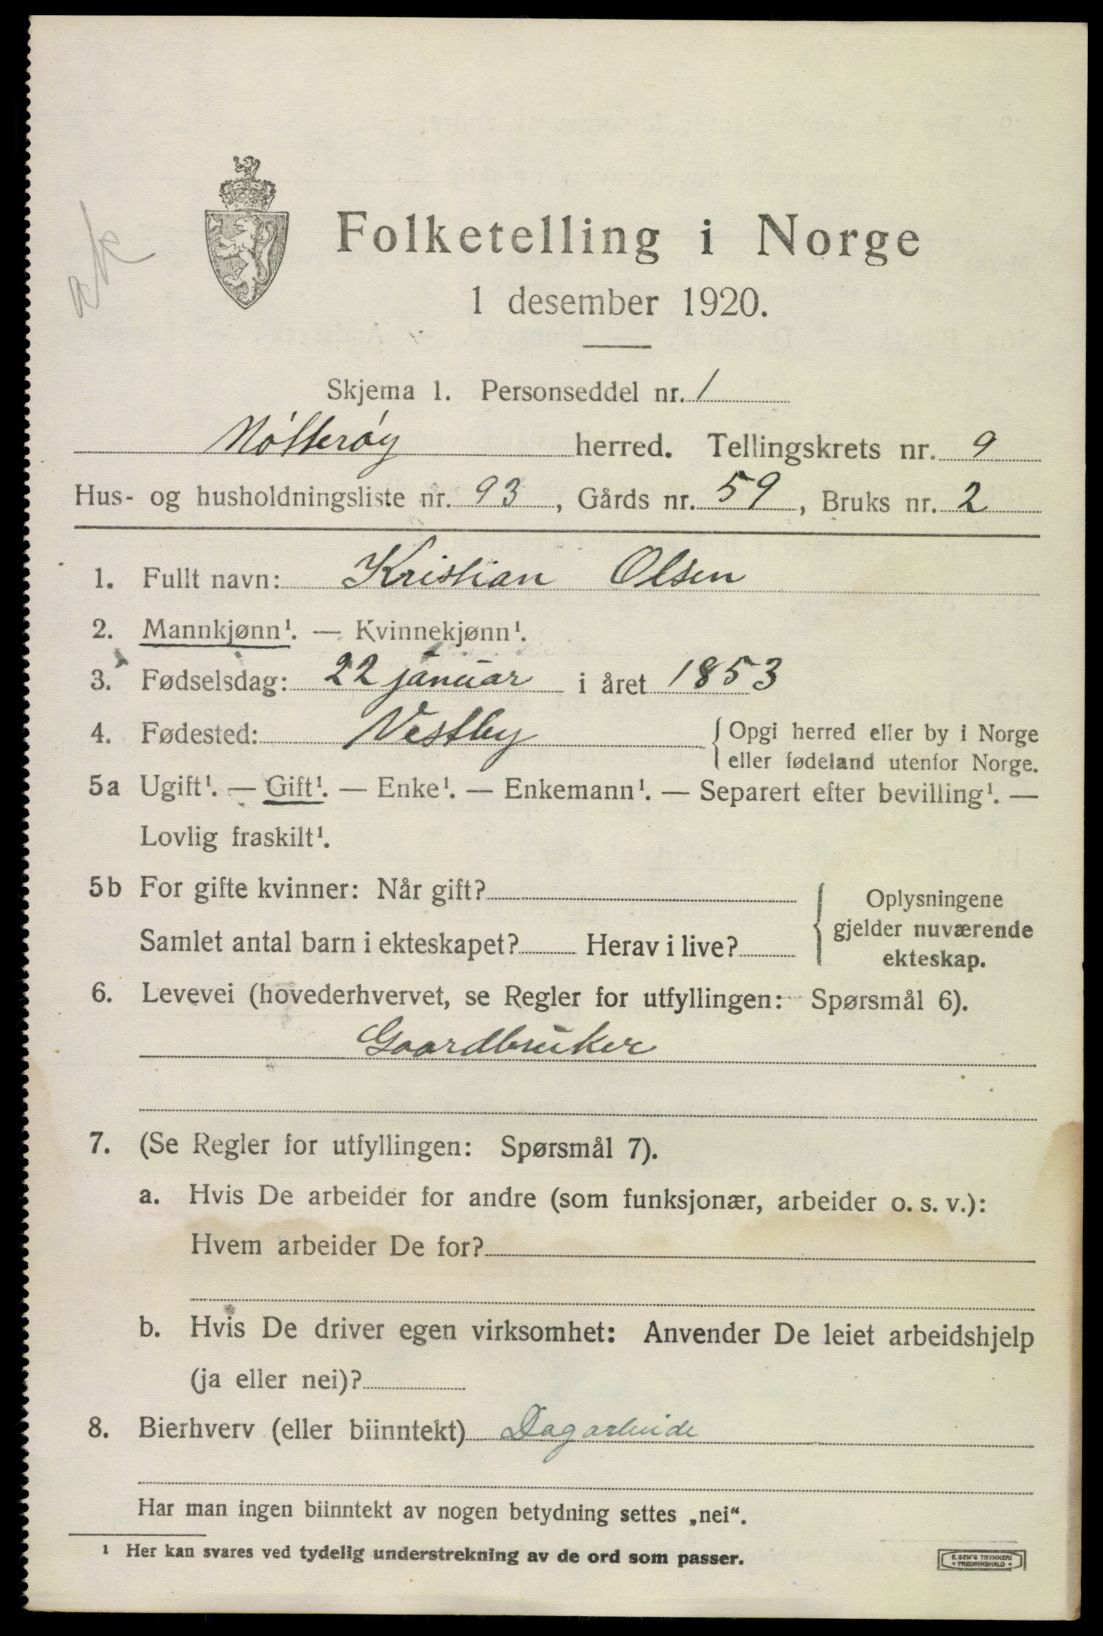 Folketelling i Norge
1 desember 1920.
Skjema 1. Personseddel nr. 1
Nøtterøy herred. Tellingskrets nr. 9
Hus- og husholdningsliste nr. 93, Gårds nr. 59, Bruks nr. 2
1. Fullt navn: Kristian Olsen
2. Mannkjønn¹. — Kvinnekjønn¹.
3. Fødselsdag: 22 januar i året 1853
4. Fødested: Vestby { Opgi herred eller by i Norge
eller fødeland utenfor Norge.
5a Ugift¹. — Gift¹. — Enke¹. — Enkemann¹. — Separert efter bevilling¹. —
Lovlig fraskilt¹.
5b For gifte kvinner: Når gift?
Samlet antal barn i ekteskapet? Herav i live?
{ Oplysningene
gjelder nuværende
ekteskap.
6. Levevei (hovederhvervet, se Regler for utfyllingen: Spørsmål 6).
Gaardbruker
7. (Se Regler for utfyllingen: Spørsmål 7).
a. Hvis De arbeider for andre (som funksjonær, arbeider o. s. v.):
Hvem arbeider De for?
b. Hvis De driver egen virksomhet: Anvender De leiet arbeidshjelp
(ja eller nei)?
8. Bierhverv (eller biinntekt) Dagarbeide
Har man ingen biinntekt av nogen betydning settes „nei“.
¹ Her kan svares ved tydelig understrekning av de ord som passer.
E. SEM'S TRYKKERI
FREDRIKSHALD